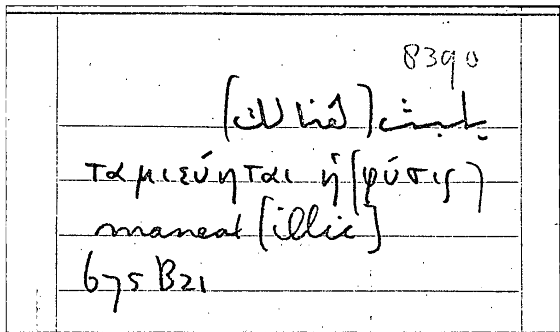 8390
يلبث (هنالك)
ταμιεύηται ἡ (φύσις)
maneat [illic]
675 B21